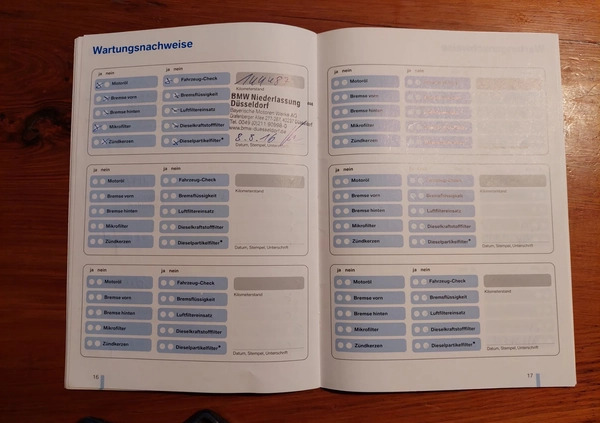 Wartungsnachweise
ja nein ja nein
Motoröl Fahrzeug-Check
Bremse vorn Bremsflüssigkeit Kilometerstand
Bremse hinten Luftfiltereinsatz
Mikrofilter Dieselkraftstofffilter
Zündkerzen Dieselpartikelfilter*
BMW Niederlassung
Düsseldorf
Bayerische Motoren Werke AG
8.8.16
Datum, Stempel, Unterschrift
ja nein ja nein
Motoröl Fahrzeug-Check
Bremse vorn Bremsflüssigkeit Kilometerstand
Bremse hinten Luftfiltereinsatz
Mikrofilter Dieselkraftstofffilter
Zündkerzen Dieselpartikelfilter*
Datum, Stempel, Unterschrift
ja nein ja nein
Motoröl Fahrzeug-Check
Bremse vorn Bremsflüssigkeit Kilometerstand
Bremse hinten Luftfiltereinsatz
Mikrofilter Dieselkraftstofffilter
Zündkerzen Dieselpartikelfilter*
Datum, Stempel, Unterschrift
16
Motoröl
Bremse vorn
Bremse hinten
Mikrofilter
Zündkerzen
ja nein ja nein
Motoröl Fahrzeug-Check
Bremse vorn Bremsflüssigkeit Kilometerstand
Bremse hinten Luftfiltereinsatz
Mikrofilter Dieselkraftstofffilter
Zündkerzen Dieselpartikelfilter*
Datum, Stempel, Unterschrift
ja nein ja nein
Motoröl Fahrzeug-Check
Bremse vorn Bremsflüssigkeit Kilometerstand
Bremse hinten Luftfiltereinsatz
Mikrofilter Dieselkraftstofffilter
Zündkerzen Dieselpartikelfilter*
Datum, Stempel, Unterschrift
17